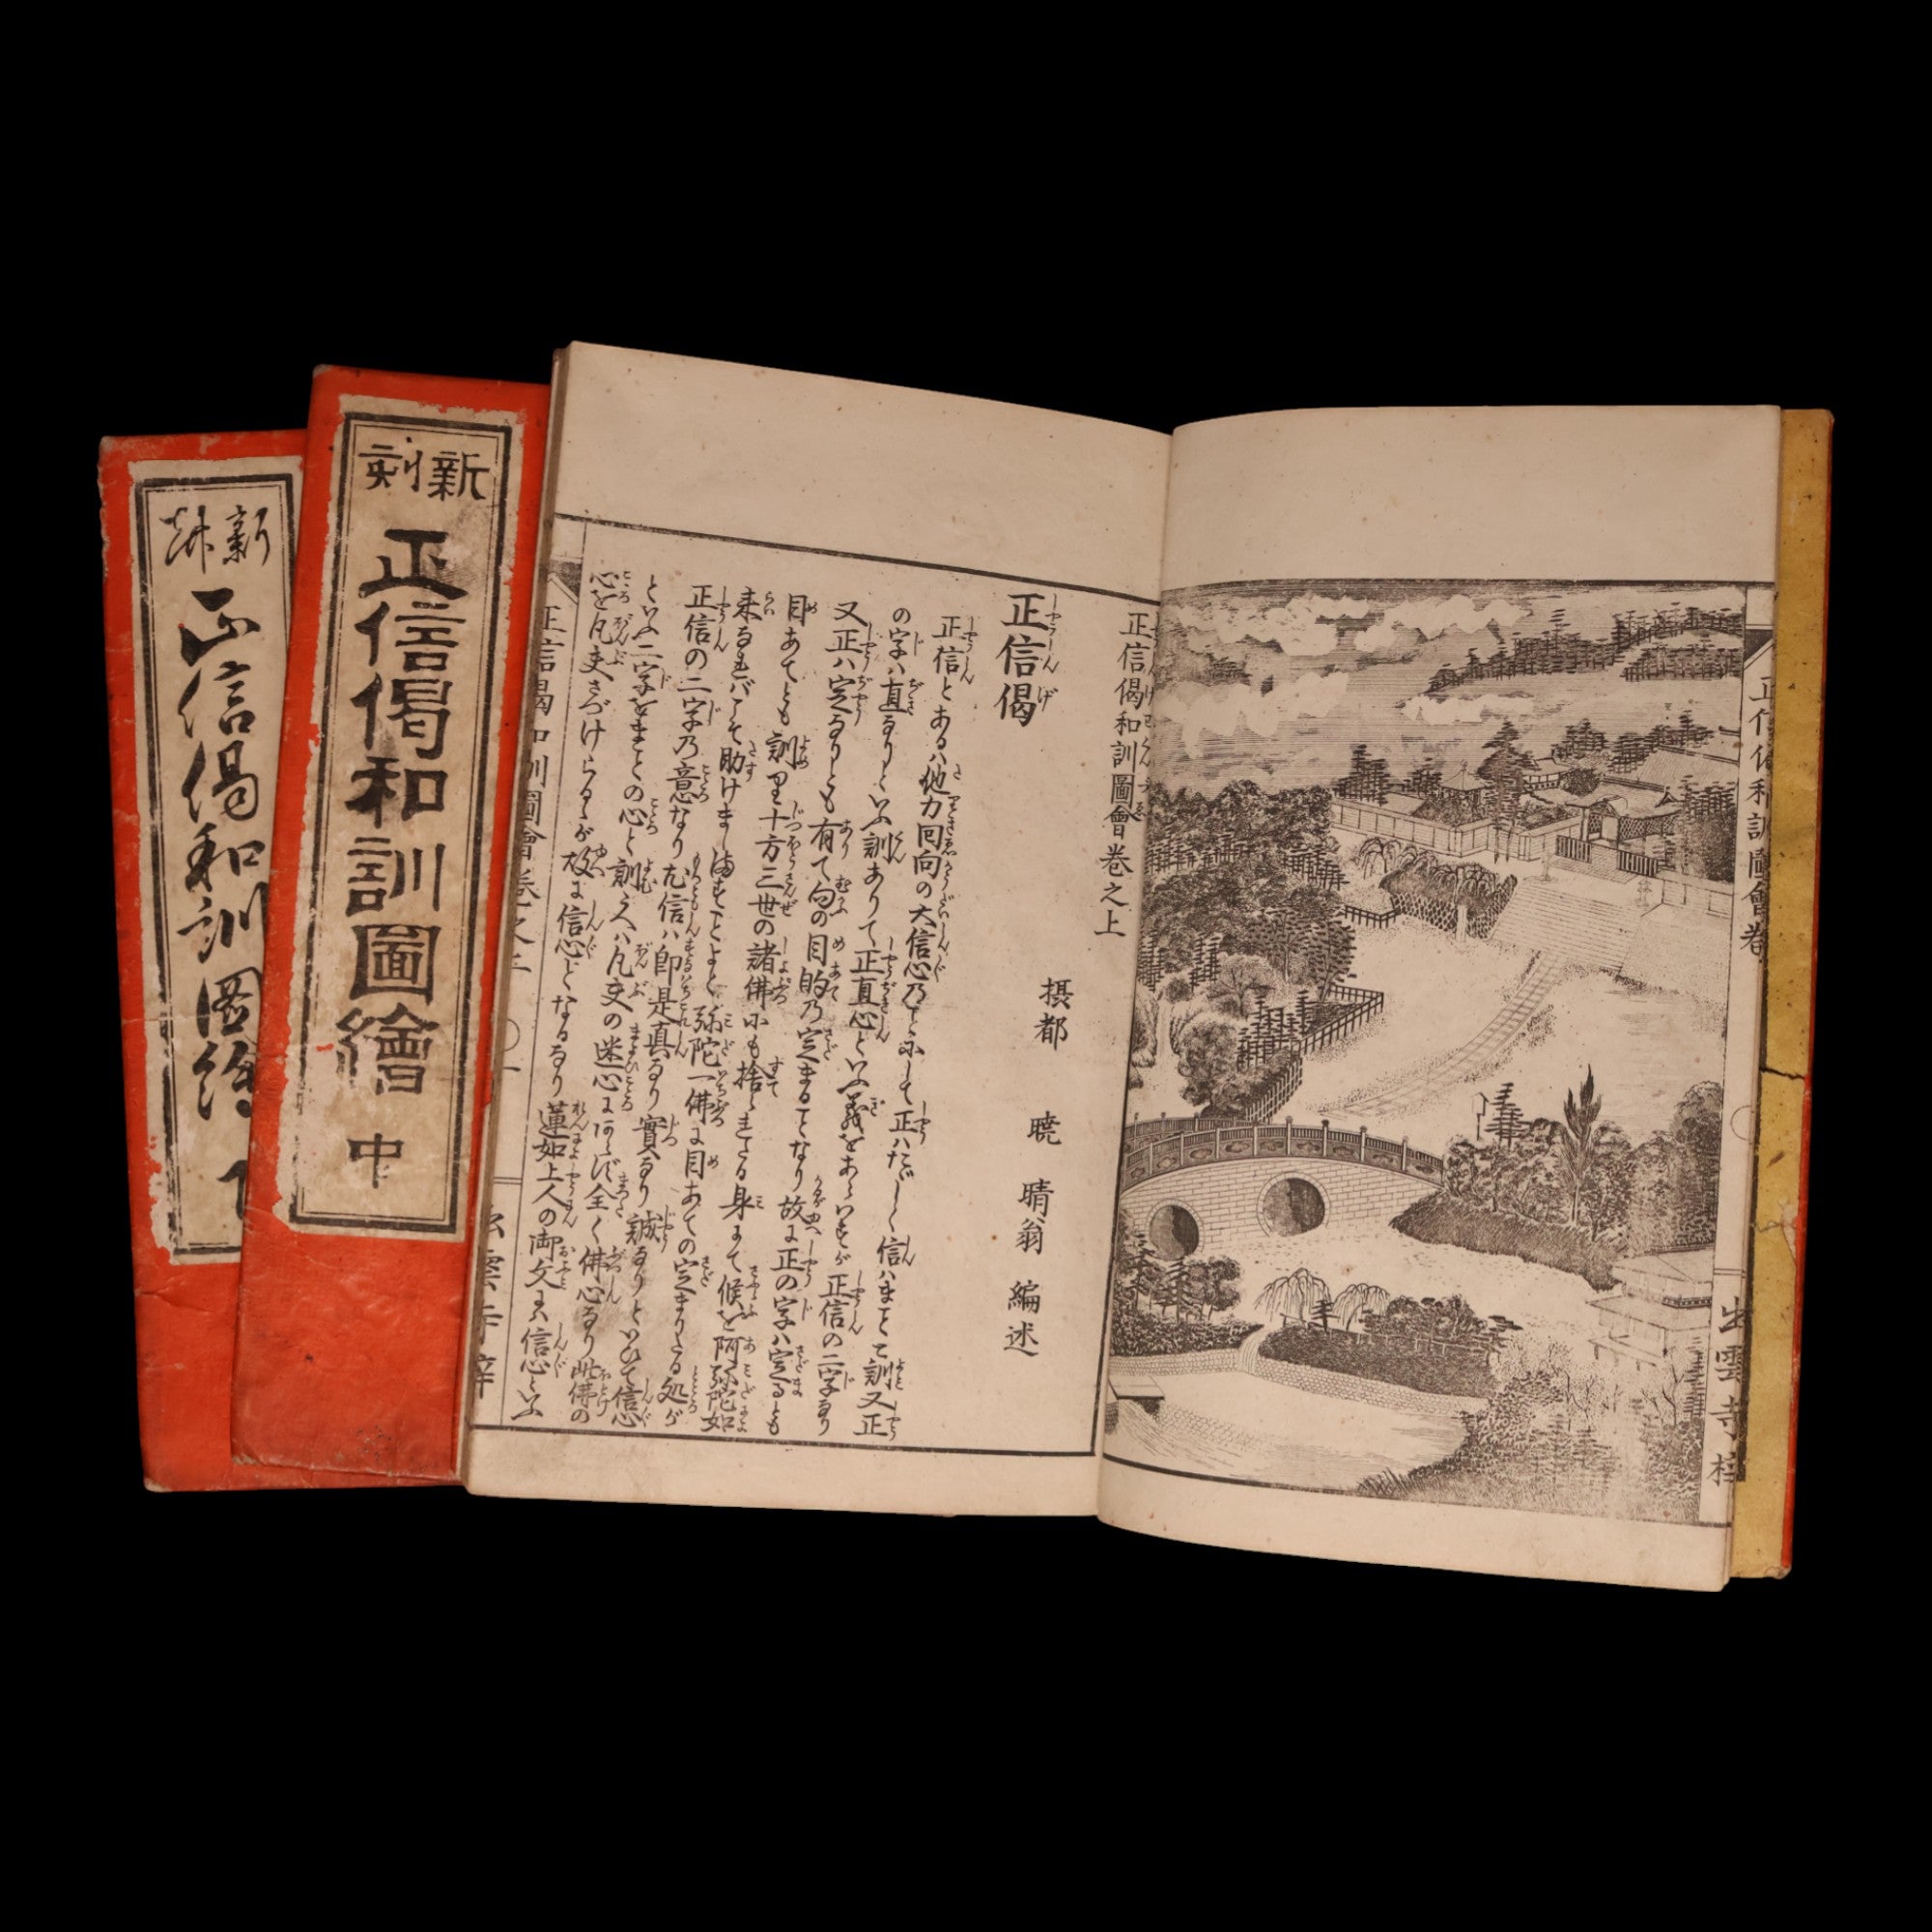 正信偈和訓圖會卷
出雲寺梓
正信偈和訓圖會巻之上
摂都 暁 晴翁 編述
正信偈
正信とあるハ他力回向の大信心乃ことにして正ハたゞしく信ハまことと訓又正
の字ハ直なりといふ訓ありて正直心といふ義をあらハすが正信の二字なり
又正ハ定なりとも有て向の目的乃定まることなり故に正の字ハ定るとも
目あてとも訓り十方三世の諸佛にも捨られたる身にて候を阿弥陀如
来なれバこそ助けましますことよと弥陀一佛に目あての定まりたる処が
正信の二字乃意なり尤信ハ即是真なり實なり誠なりといひて信心
といふ二字をまことの心と訓うへハ凡夫の迷心にあらず全く佛心なり此佛の
心を凡夫にさづけらるゝが故に信心となるなり蓮如上人の御文に信心といふ
新刻
正信偈和訓圖繪 中
新刻
正信偈和訓圖繪 下